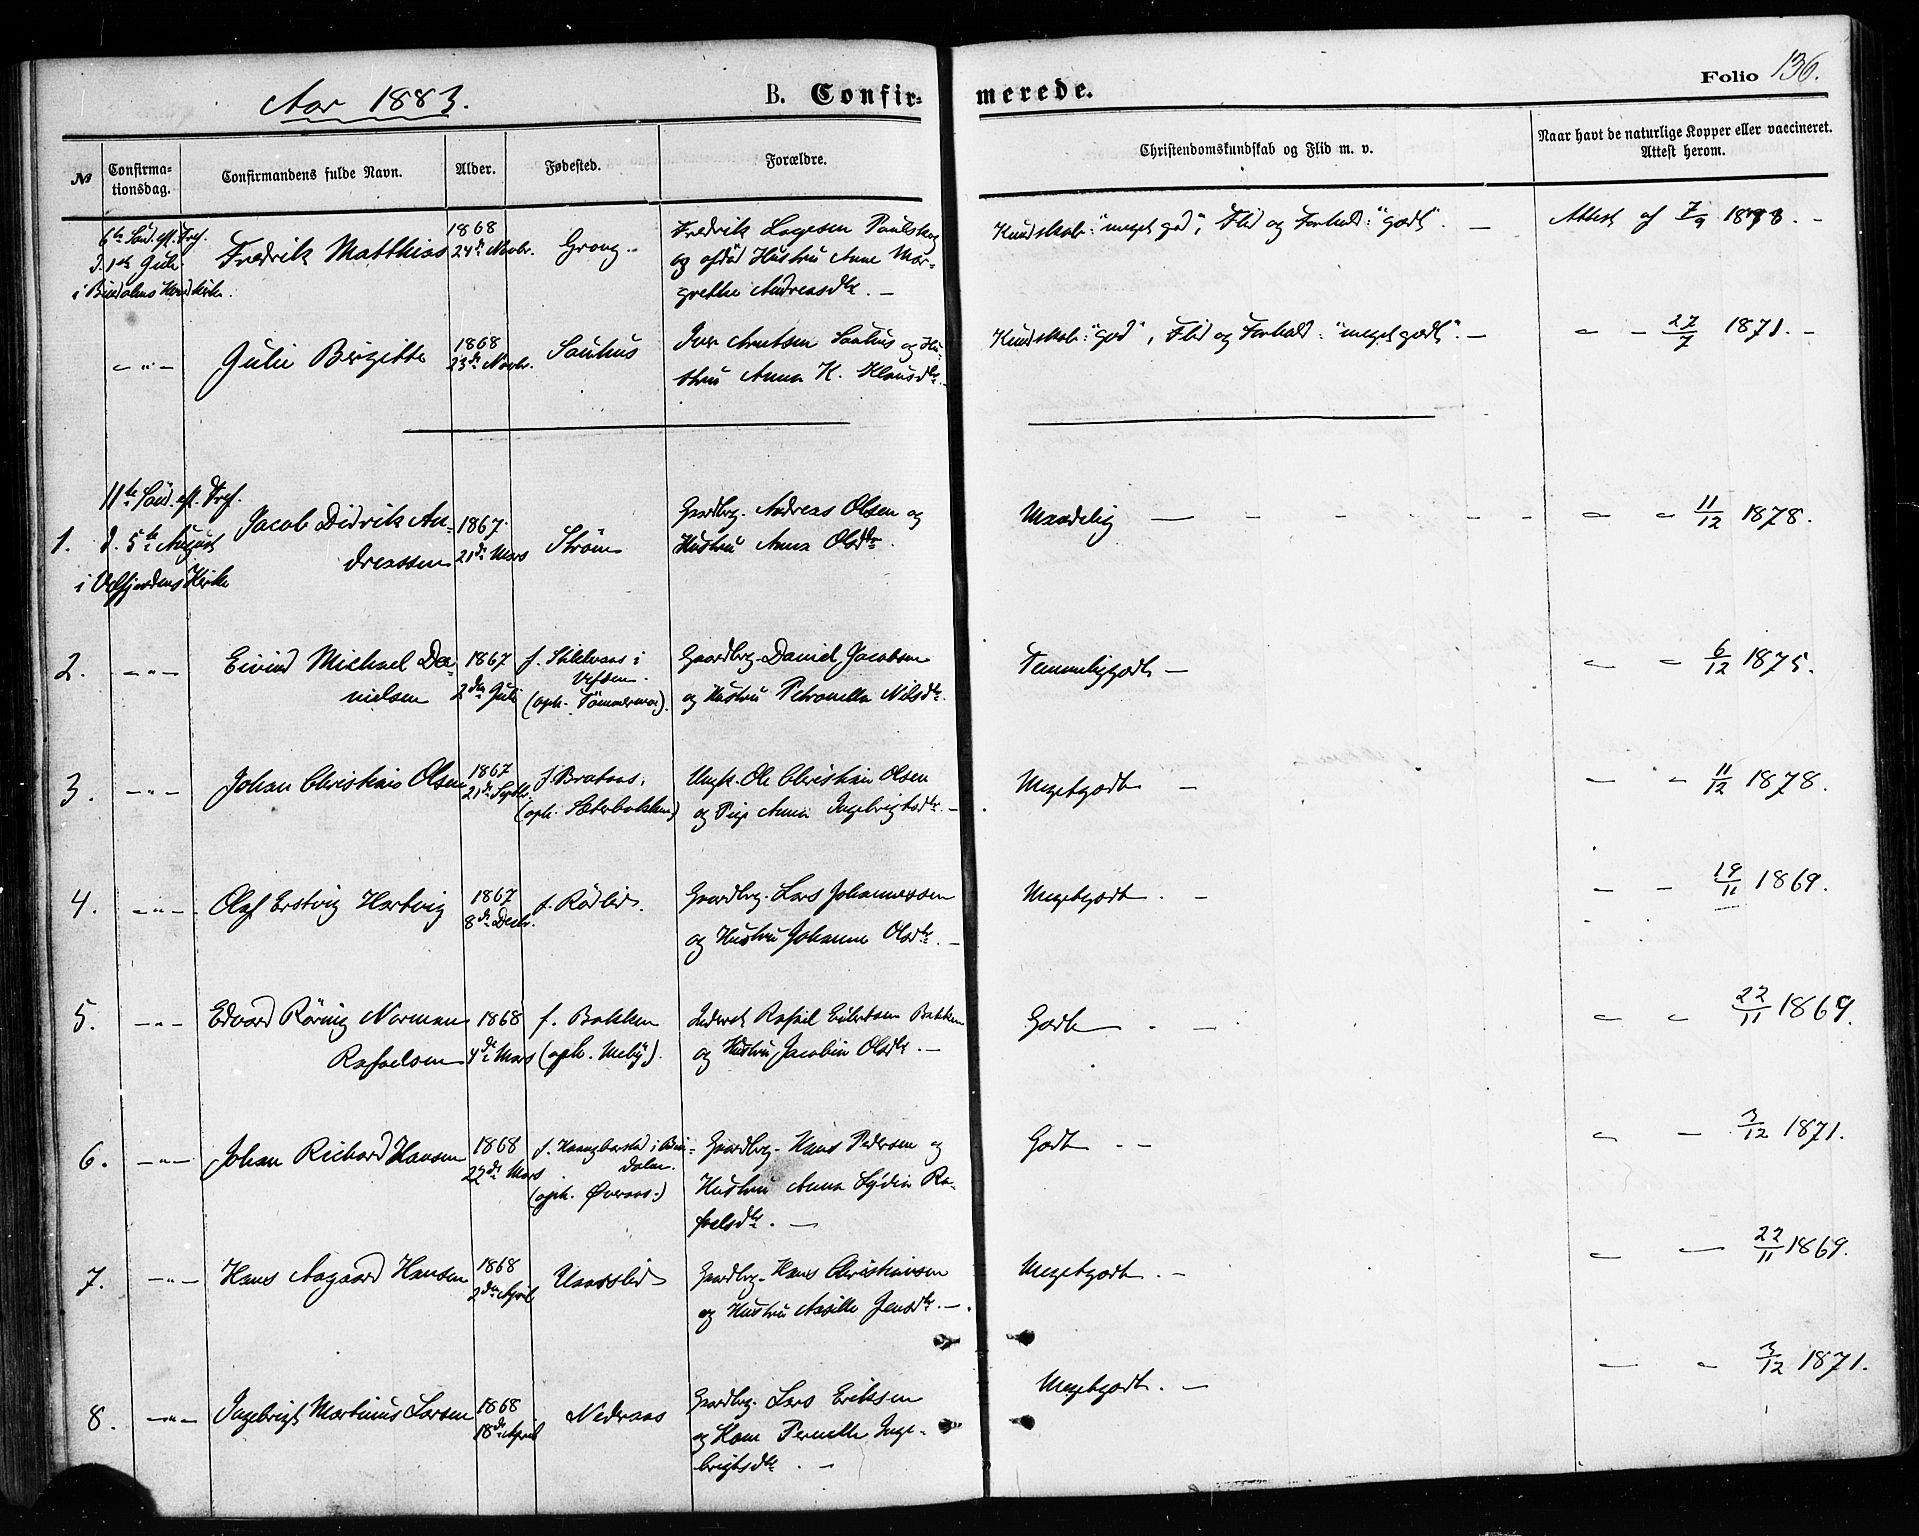 Aar 1883.
B. Confirmerede.
Folio 136.
№
Confirmationsdag.
Confirmandens fulde Navn.
Alder.
Fødested.
Forældre.
Christendomskundskab og Flid m. v.
Naar havt de naturlige Kopper eller vaccineret.
Attest herom.
6te Sönd. eft. Tref.
d. 1ste Juli
i Bindalens Hovedkirke.
Fredrik Matthias
1868
24de Novbr.
Grong.
Fredrik Lagesen
og afdöd Hustru Anne Mar-
grethe Andreasdtr. —
Kundskab: "meget god", Flid og Forhold: "godt". —
Attest af 7/9 1878. —
— " —
Julie Birgitte
1868
23de Novbr.
Sauhus
Iver Arntsen Sauhus og Hu-
stru Anna K. Klausdtr. —
Kundskab: "god", Flid og Forhold: "meget godt". —
" — 27/7 1871. —
1.
11te Sönd. eft. Tref.
d. 5te August
i Velfjordens Kirke
Jacob Didrik An-
dreassen
1867
21de Mars
Ström
Gaardbrg. Andreas Olsen og
Hustru Anna Olsdtr.
Maadelig — — — — — — —
" " 11/12 1878.
2.
— " —
Eivind Michael Da-
nielsen
1867
2den Juli
f. i
Vefsen.
(oph. Tömmermo).
Gaardbrg. Daniel Jacobsen
og Hustru Petronella Nilsdtr.
Temmeliggodt —
" " 6/12 1875.
3.
— " —
Johan Christian Olsen
1867
21de Septbr.
f. Brataas.
(oph. Sæterbakken)
Ungk. Ole Christian Olsen
og Pige Anna Ingebrigtsdtr. —
Megetgodt —
" " 11/12 1878.
4.
— " —
Olaf Erstvig Hartvig
1867
8de Decbr.
f. Rödlid.
Gaardbrg. Lars Johannessen
og Hustru Johanna Olsdtr. —
Megetgodt. —
— — 19/11 1869.
5.
— " —
Edvard Röring Norman
Rafaelsen
1868
4de Mars
f. Bakken
(oph. Meby).
Inderst Rafael Eilertsen Bakken
og Hustru Jacobine Olsdtr. —
Godt. —
" " 22/11 1869.
6.
— " —
Johan Richard Hansen
1868
22de Mars
f. i Bin-
dalen.
(oph. Øveraas.)
Gaardbrg. Hans Pedersen og
Hustru Anna Lydia Ra-
faelsdtr. —
Godt — —
" — 3/12 1871.
7.
— " —
Hans Aagaard Hansen
1868
2den April
Gaardbrg. Hans Christiansen
og Hustru Jensdtr. —
Megetgodt. —
" — 22/11 1869.
8.
— " —
Ingebrigt Martinus Larsen
1868
18de April
Nederaas
Gaardbrg. Lars Eriksen
og Kone Pernella Inge-
brigtsdtr. —
Megetgodt. —
— " 3/12 1871.